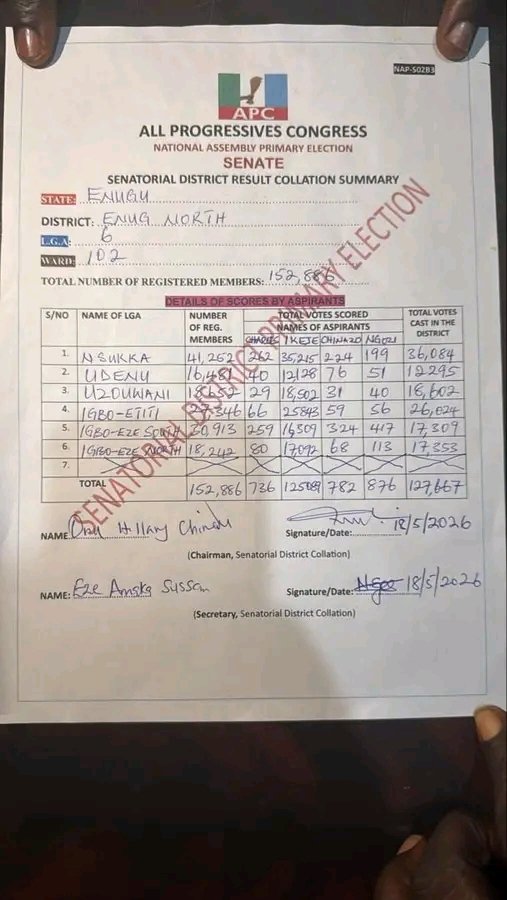 NAP-S02B3
APC
ALL PROGRESSIVES CONGRESS
NATIONAL ASSEMBLY PRIMARY ELECTION
SENATE
SENATORIAL DISTRICT RESULT COLLATION SUMMARY
STATE: ENUGU
DISTRICT: ENUG NORTH
L.G.A: 6
WARD: 102
TOTAL NUMBER OF REGISTERED MEMBERS: 152,886
DETAILS OF SCORES BY ASPIRANTS
S/NO NAME OF LGA NUMBER OF REG. MEMBERS TOTAL VOTES SCORED NAMES OF ASPIRANTS TOTAL VOTES CAST IN THE DISTRICT
CHARLES IKEJE CHINAZO NGOZI
1. NSUKKA 41,252 262 35,215 224 199 36,084
2. UDENU 16,481 40 12128 76 51 12295
3. UZOUWANI 29 18,502 31 40 18,602
4. IGBO-ETITI 27,346 66 25843 59 56 26,024
5. IGBO-EZE SOUTH 30,913 259 16,309 324 417 17,309
6. IGBO-EZE NORTH 18,242 80 17,092 68 113 17,353
7.
TOTAL 152,886 736 125089 782 876 127,667
NAME: Hillary
Signature/Date: 18/5/2026
(Chairman, Senatorial District Collation)
NAME: Eze Sussan
Signature/Date: Ngoo 18/5/2026
(Secretary, Senatorial District Collation)
SENATORIAL DISTRICT PRIMARY ELECTION